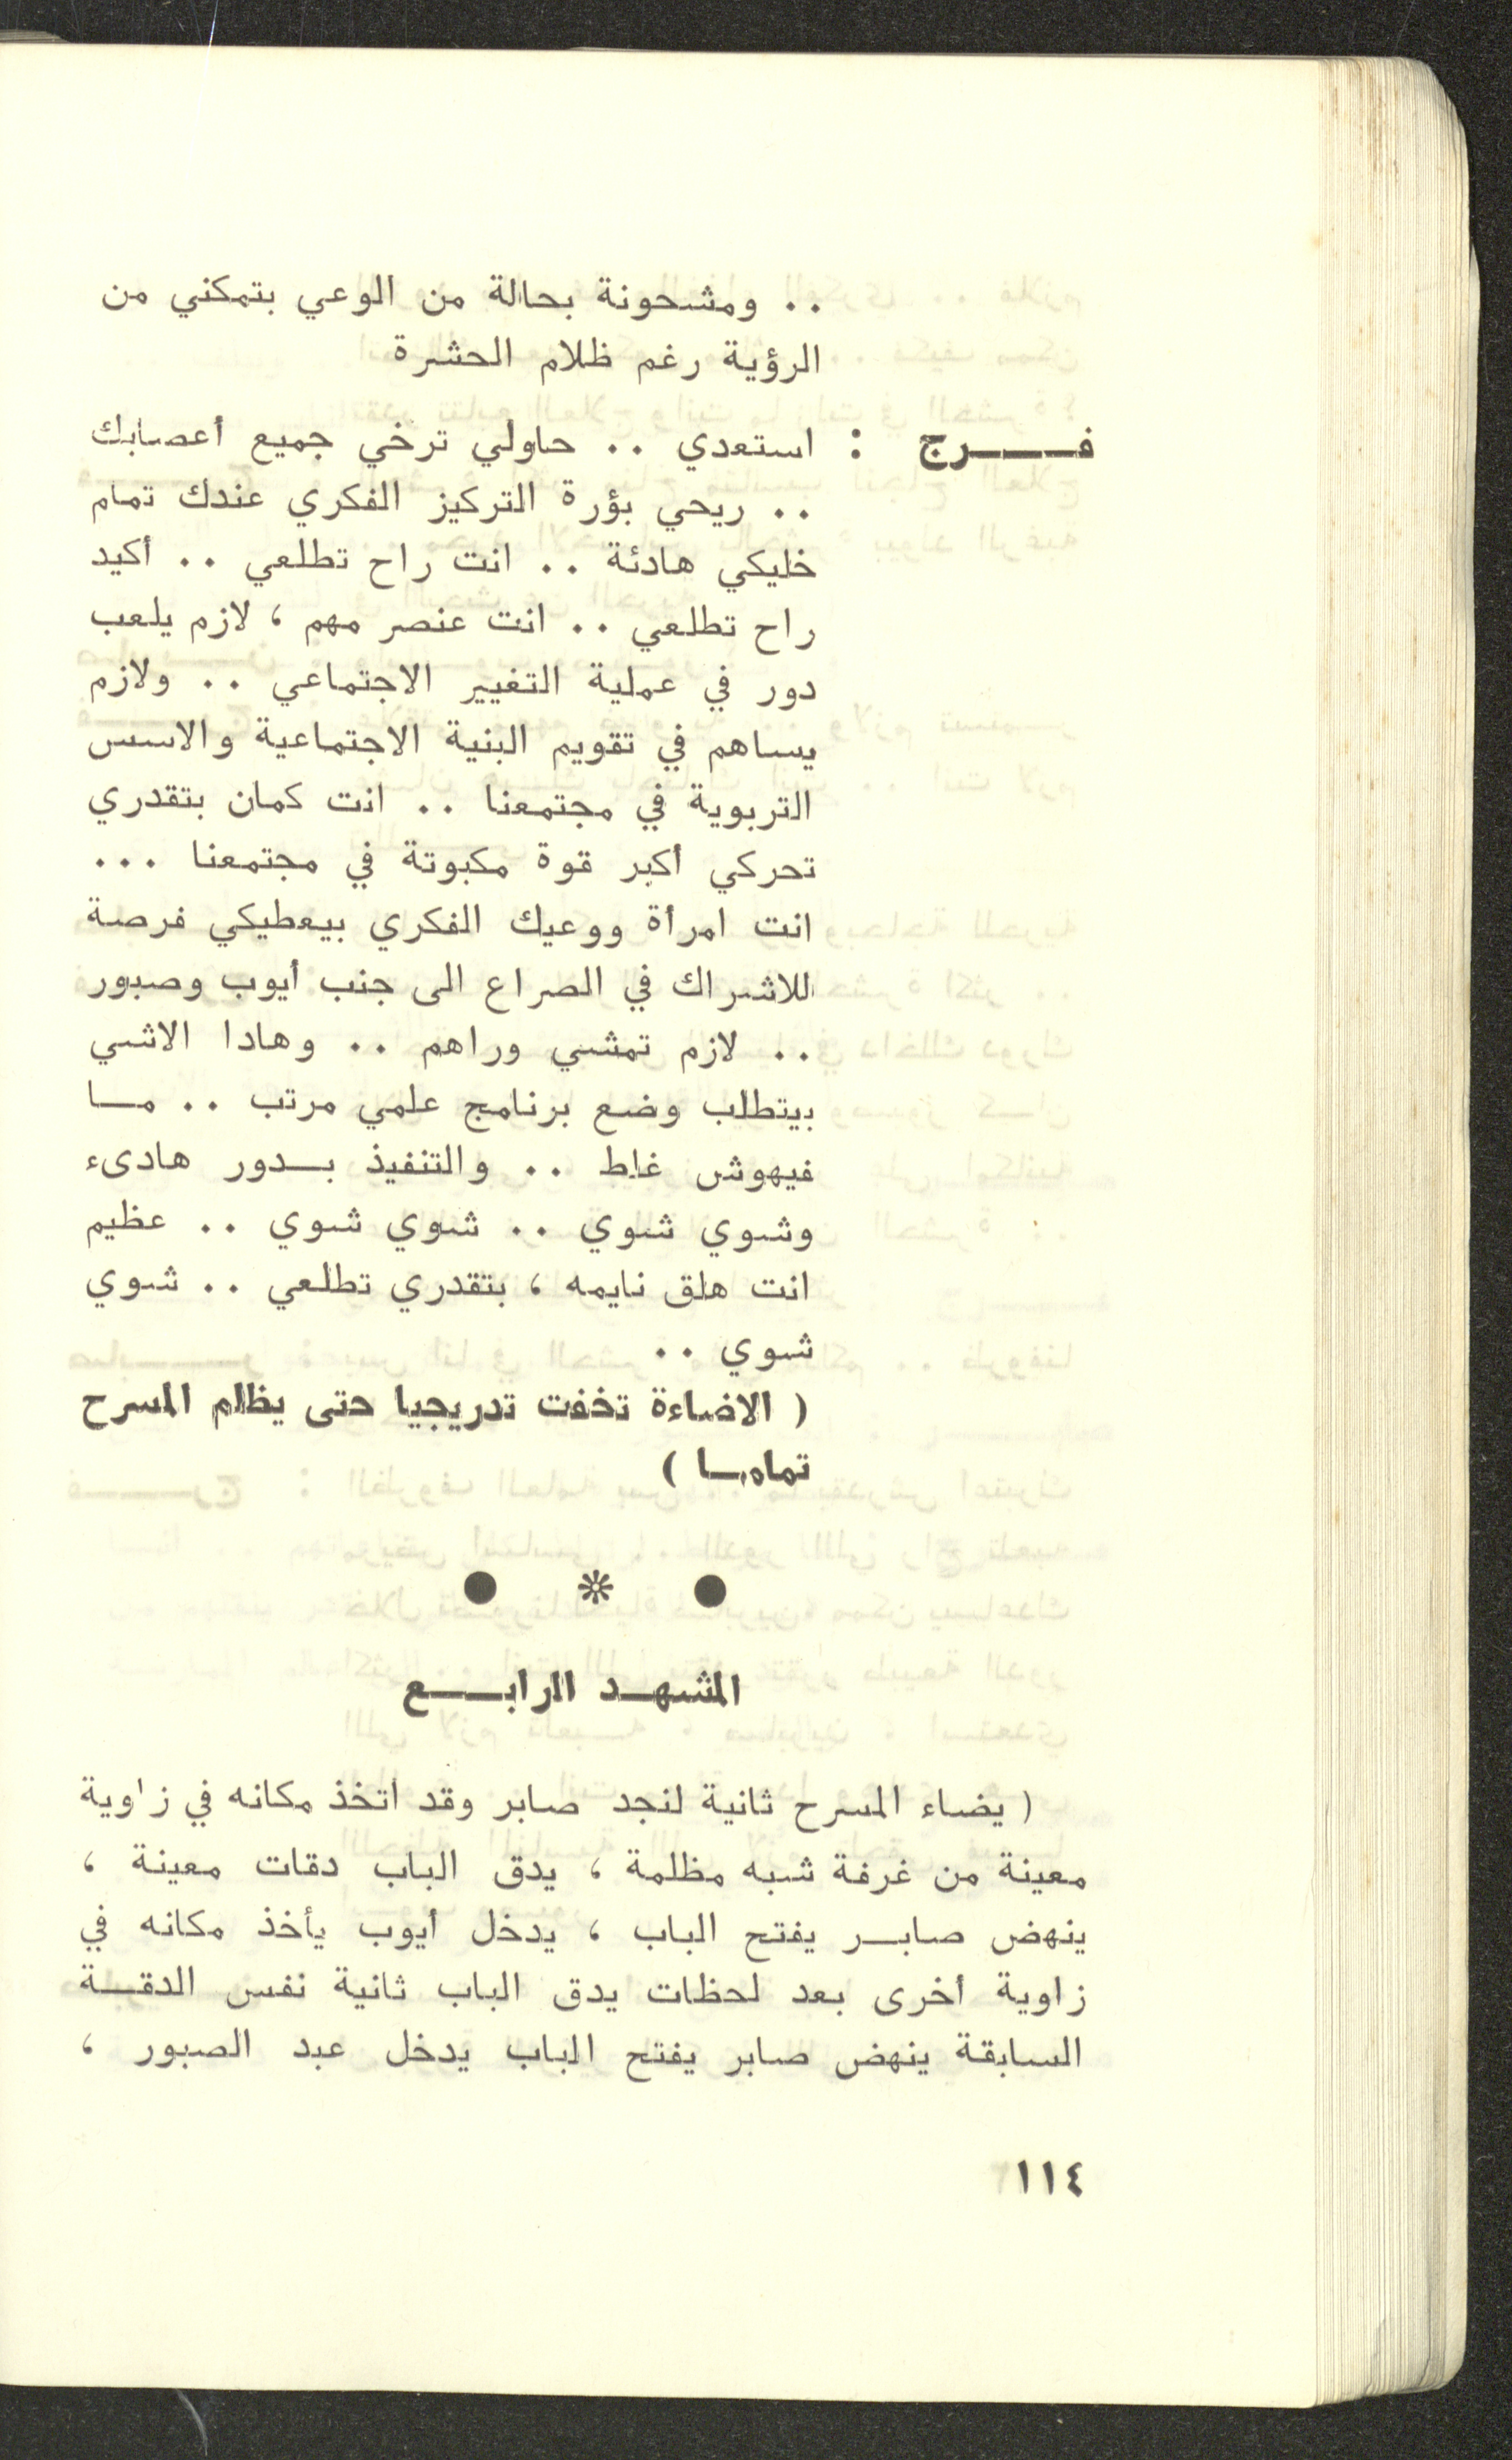 .. ومشحونة بحالة من الوعي بتمكني من
الرؤية رغم ظلام الحشرة
فـــرج : استعدي .. حاولي ترخي جميع أعصابك
.. ريحي بؤرة التركيز الفكري عندك تمام
خليكي هادئة .. انت راح تطلعي .. أكيد
راح تطلعي .. انت عنصر مهم ، لازم يلعب
دور في عملية التغيير الاجتماعي .. ولازم
يساهم في تقويم البنية الاجتماعية والاسس
التربوية في مجتمعنا .. انت كمان بتقدري
تحركي أكبر قوة مكبوتة في مجتمعنا ...
انت امرأة ووعيك الفكري بيعطيكي فرصة
للاشراك في الصراع الى جنب أيوب وصبور
.. لازم تمشي وراهم .. وهادا الاشي
بيتطلب وضع برنامج علمي مرتب .. مـا
فيهوش غلط .. والتنفيذ بـدور هادىء
وشوي شوي .. شوي شوي .. عظيم
انت هلق نايمه ، بتقدري تطلعي .. شوي
شوي ..
( الاضاءة تخفت تدريجيا حتى يظلم المسرح
تمامـا )
● ❊ ●
المشهـد الرابـع
( يضاء المسرح ثانية لنجد صابر وقد اتخذ مكانه في زاوية
معينة من غرفة شبه مظلمة ، يدق الباب دقات معينة ،
ينهض صابـر يفتح الباب ، يدخل أيوب يأخذ مكانه في
زاوية أخرى بعد لحظات يدق الباب ثانية نفس الدقـة
السابقة ينهض صابر يفتح الباب يدخل عبد الصبور ،
١١٤